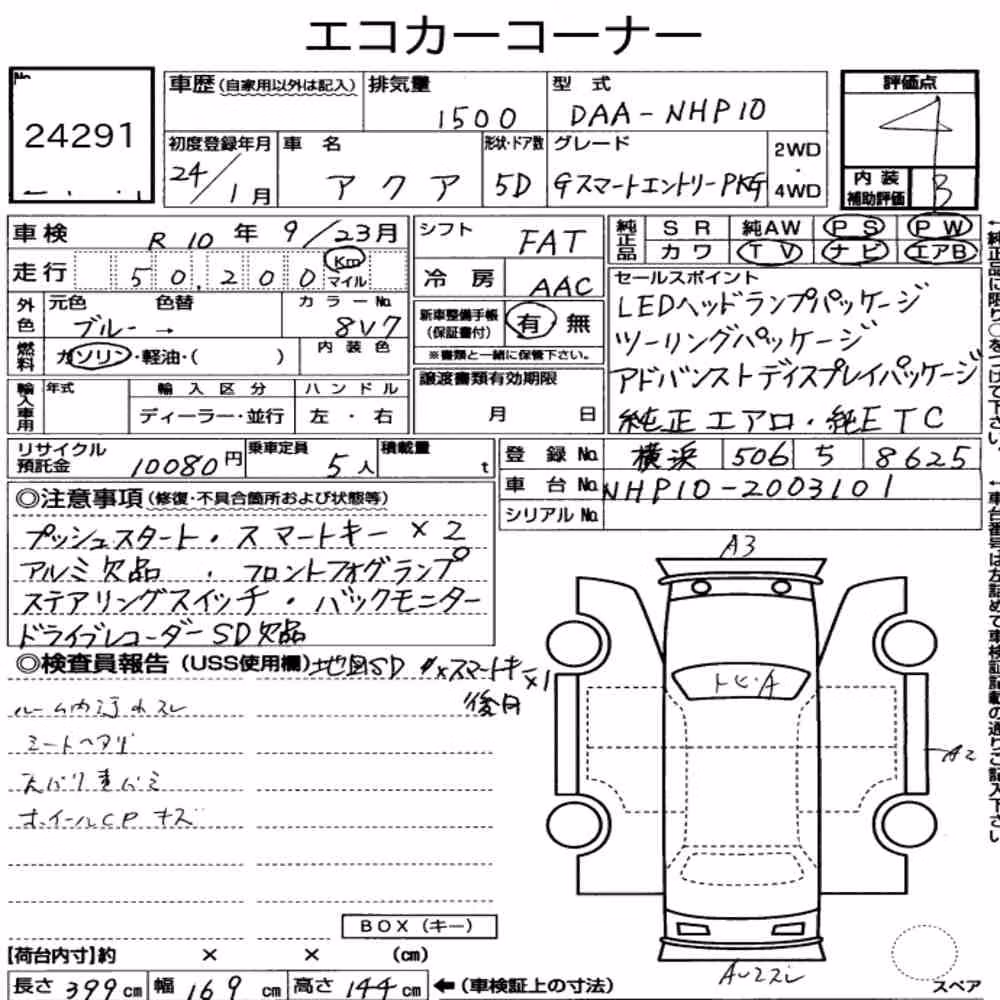 エコカーコーナー
No.
24291
車歴 (自家用以外は記入)
排気量
1500
型式
DAA-NHP10
評価点
4
初度登録年月
24/1月
車名
アクア
形状・ドア数
5D
グレード
GスマートエントリーPKG
2WD
・
4WD
内装
補助評価
B
車検
R10年9/23月
走行
50,200
Km
マイル
シフト
FAT
冷房
AAC
純正品
SR 純AW PS PW
カワ TV ナビ エアB
外色
元色 色替
ブルー →
カラーNo.
8V7
燃料
ガソリン・軽油・( )
内装色
新車整備手帳
(保証書付)
有 無
※書類と一緒に保管下さい。
セールスポイント
LEDヘッドランプパッケージ
ツーリングパッケージ
アドバンストディスプレイパッケージ
純正エアロ・純ETC
輸入車用
年式
輸入区分
ディーラー・並行
ハンドル
左・右
譲渡書類有効期限
月 日
リサイクル
預託金
10080円
乗車定員
5人
積載量
t
登録No.
横浜 506 ち 8625
車台No.
NHP10-2003101
シリアルNo.
◎注意事項(修復・不具合箇所および状態等)
プッシュスタート・スマートキー×2
アルミ欠品・フロントフォグランプ
ステアリングスイッチ・バックモニター
ドライブレコーダーSD欠品
◎検査員報告(USS使用欄)
地図SD
スマートキー×1
後日
ルーム内汚れスレ
シートヘタリ
天バリ黄バミ
ホイールCPキズ
A3
トビ・A
A2
BOX(キー)
[荷台内寸]約 × × (cm)
長さ399cm 幅169cm 高さ144cm ←(車検証上の寸法)
スペア
←純正品に限り○をつけて下さい。
←車台番号は左詰めで車検証記載の通りご記入下さい。